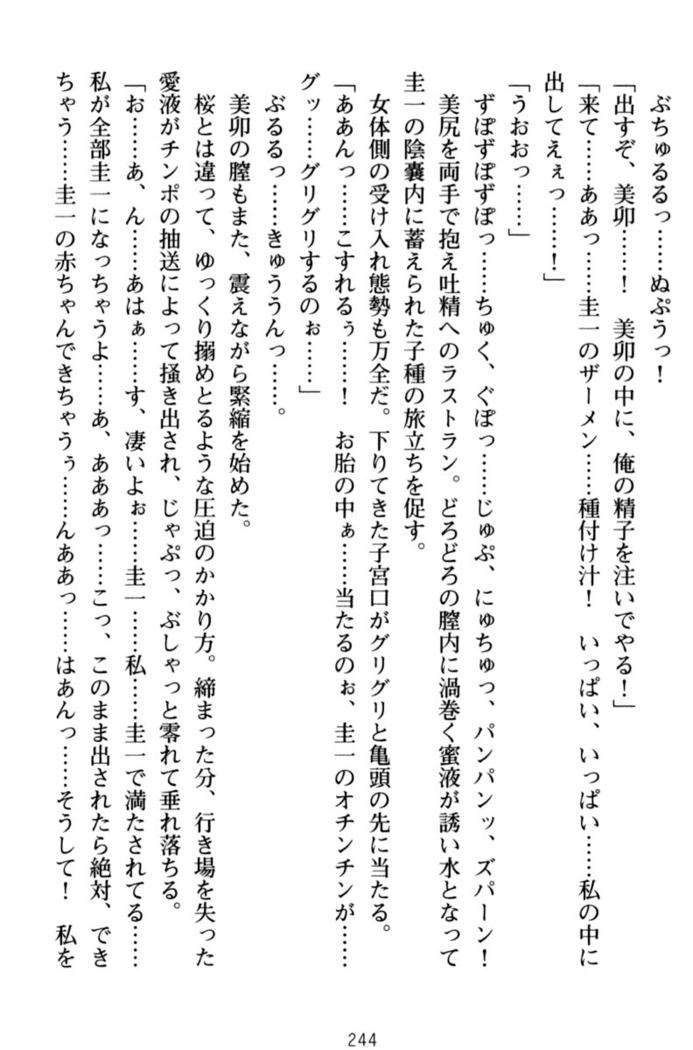 ぶちゅるるっ……ぬぷうっ！
「出すぞ、美卯……！　美卯の中に、俺の精子を注いでやる！」
「来て……ああっ……圭一のザーメン……種付け汁！　いっぱい、いっぱい……私の中に
出してえぇっ……！」
「うおおっ……」
ずぽずぽずぽっ……ちゅく、ぐぽっ……じゅぷ、にゅちゅっ、パンパンッ、ズパーン！
美尻を両手で抱え吐精へのラストラン。どろどろの膣内に渦巻く蜜液が誘い水となって
圭一の陰嚢内に蓄えられた子種の旅立ちを促す。
女体側の受け入れ態勢も万全だ。下りてきた子宮口がグリグリと亀頭の先に当たる。
「ああんっ……こすれるぅ……！　お胎の中ぁ……当たるのぉ、圭一のオチンチンが……
グッ……グリグリするのぉ……」
ぶるるっ……きゅううんっ……。
美卯の膣もまた、震えながら緊縮を始めた。
桜とは違って、ゆっくり搦めとるような圧迫のかかり方。締まった分、行き場を失った
愛液がチンポの抽送によって掻き出され、じゃぷっ、ぶしゃっと零れて垂れ落ちる。
「お……あ、ん……あはぁ……す、凄いよぉ……圭一……私……圭一で満たされてる……
私が全部圭一になっちゃうよ……あ、あああっ……こっ、このまま出されたら絶対、でき
ちゃう……圭一の赤ちゃんできちゃうぅ……んああっ……はあんっ……そうして！　私を
244